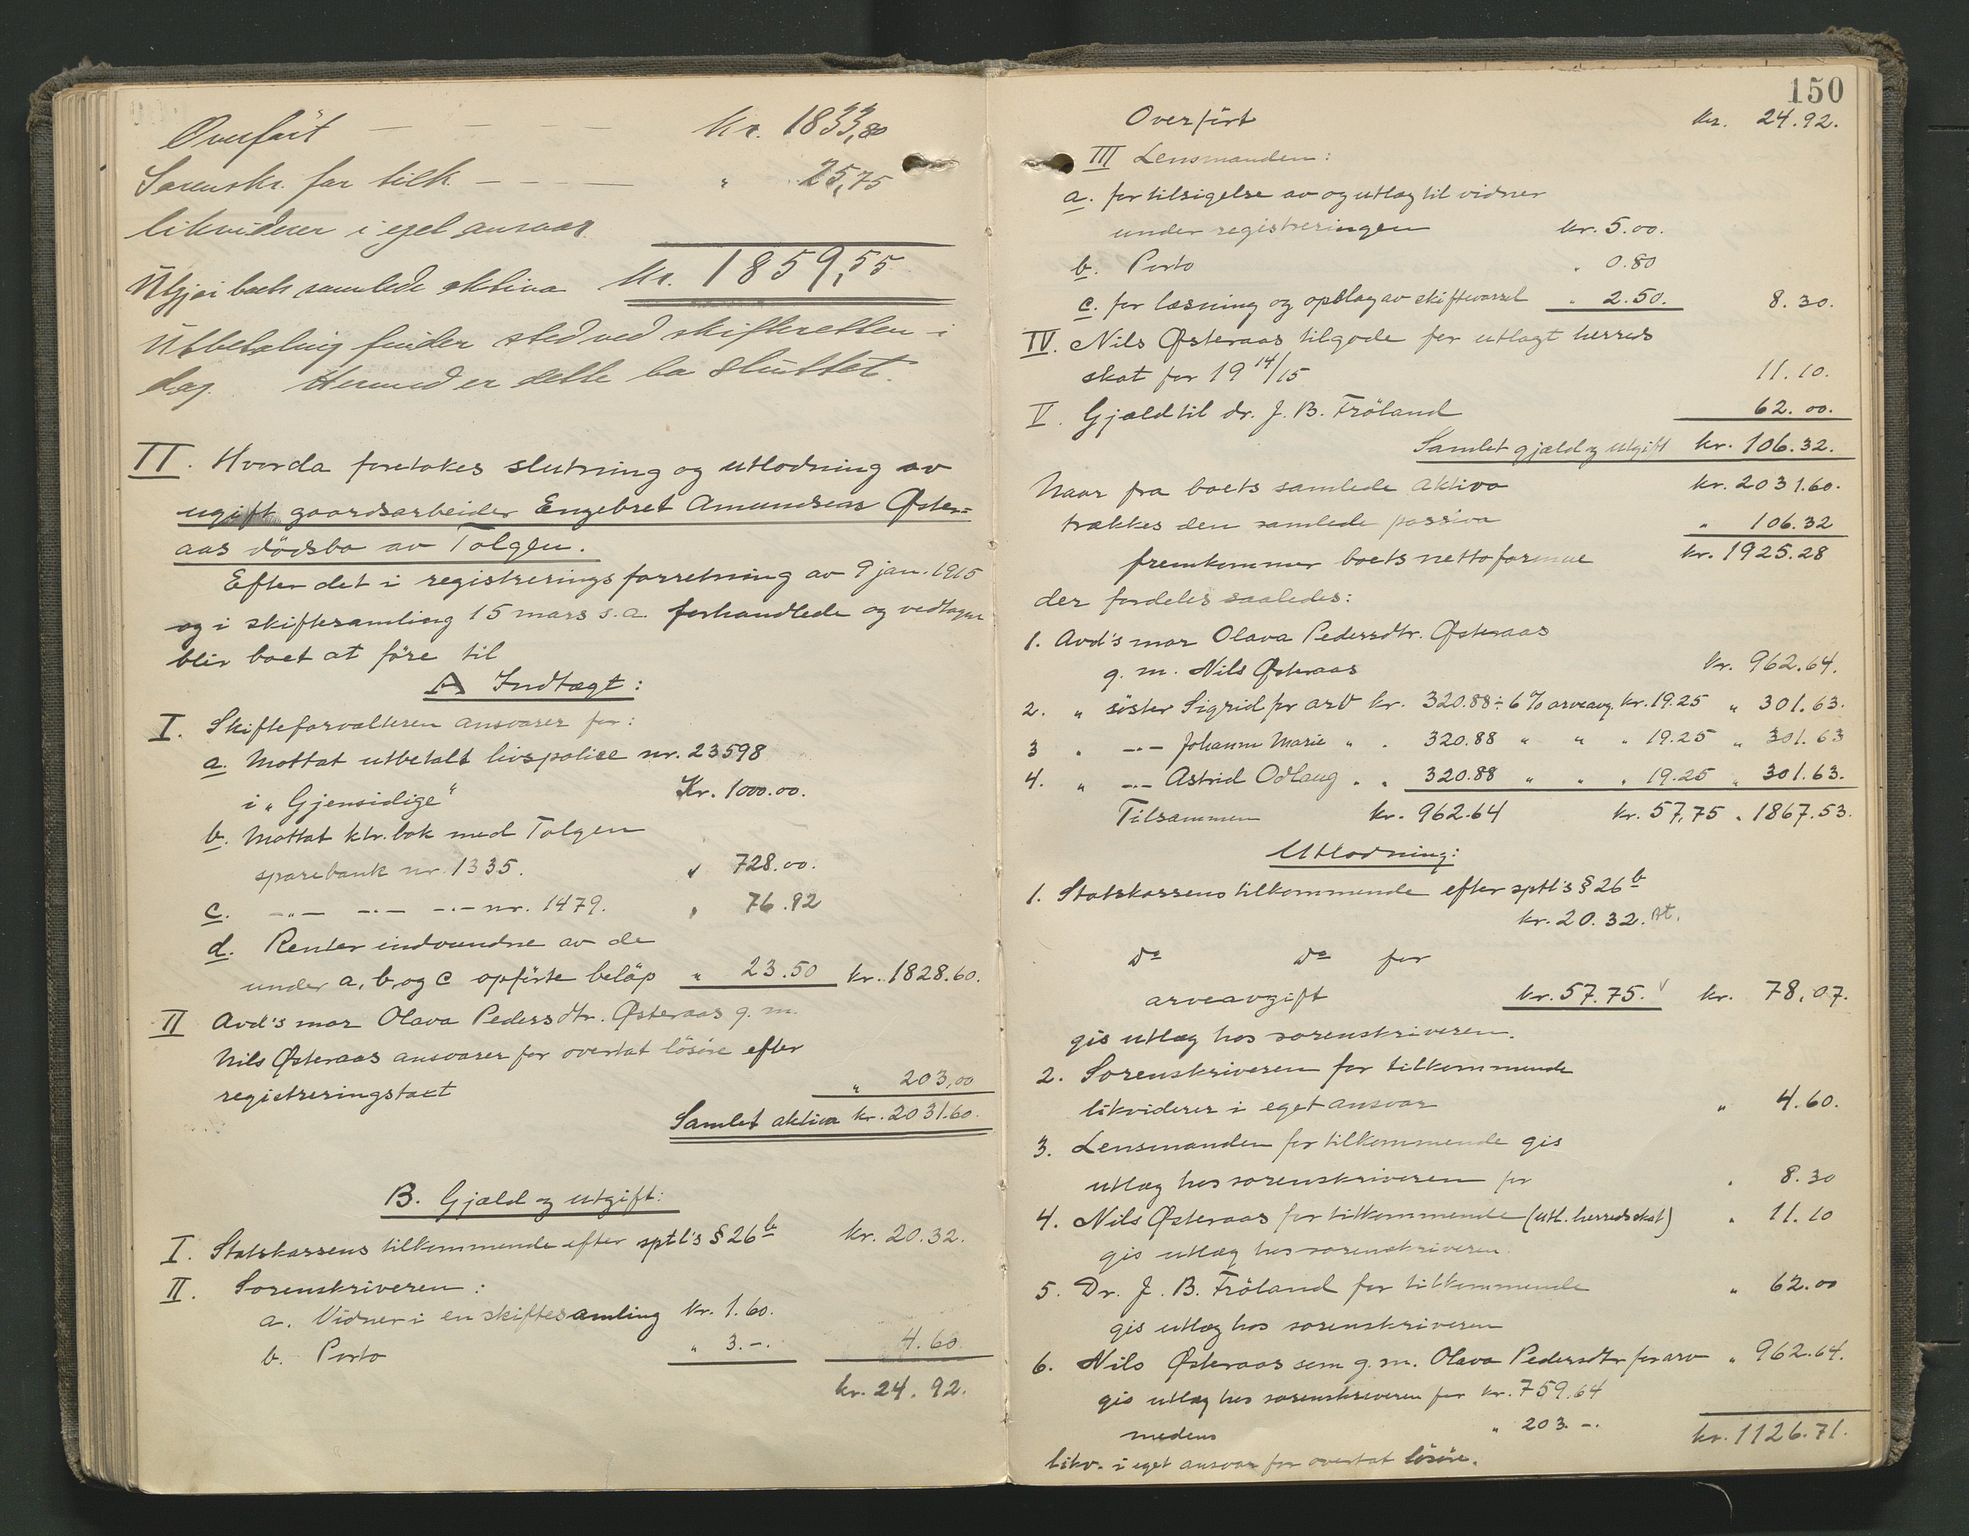 Overført - - - kr. 1833,80
Sorenskr. for tilk. - - - " 25,75
likviderer i eget ansvar.
Utgjør boets samlede aktiva kr. 1859,55
Utbetaling finder sted ved skifteretten i
dag. Hermed er dette bo sluttet.
II. Hvorda foretokes slutning og utlodning av
ugift gaardsarbeider Engebret Amundsen Øster=
aas dödsbo av Tolgen.
Efter det i registreringsforretning av 9 jan. 1915
og i skiftesamling 15 mars s.a. forhandlede og vedtagne
blir boet at före til
A Indtægt:
I. Skifteforvalteren ansvarer for:
a. Mottat utbetalt livspolise nr. 23598
i "Gjensidige" Kr. 1000.00.
b. Mottat ktr. bok med Tolgen
sparebank nr. 1335. " 728.00.
c. -"- -"- -"- nr. 1479. " 76.92
d. Renter indvundne av de
under a, b, og c opförte belöp " 23.50 kr. 1828.60.
II Avd's mor Olava Pedersdtr. Østeraas g. m.
Nils Østeraas ansvarer for overtat lösöre efter
registreringstaxt " 203,00
Samlet aktiva kr. 2031.60.
B. Gjæld og utgift:
I. Statskassens tilkommende efter sptl's § 26 b kr. 20.32.
II. Sorenskriveren:
a. Vidner i en skiftesamling kr. 1.60.
b. Porto " 3.-. 4.60.
kr. 24.92.
150
Overfört kr. 24.92.
III Lensmanden:
a. for tilsigelse av og utlæg til vidner
under registreringen kr. 5.00.
b. Porto " 0.80
c. for læsning og opslag av skiftevarsel " 2.50. 8.30.
IV. Nils Østeraas tilgode for utlagt herreds
skat for 19 14/15 11.10.
V. Gjæld til dr. J. B. Fröland 62.00.
Samlet gjæld og utgift kr. 106.32.
Naar fra boets samlede aktiva kr. 2031.60.
trækkes den samlede passiva " 106.32
fremkommer boets nettoformue kr. 1925.28
der fordeles saaledes:
1. Avd's mor Olava Pedersdtr. Østeraas
g. m. Nils Østeraas kr. 962.64.
2. " söster Sigrid pr arv kr. 320.88 ÷ 6% arveavg. kr. 19.25 " 301.63.
3 " -"- Johanne Marie " " 320.88 " " " 19.25 " 301.63
4. " -"- Astrid Odlaug " " 320.88 " " " 19.25 " 301.63.
Tilsammen kr. 962.64 kr. 57,75 " 1867.53.
Utlodning:
1. Statskassens tilkommende efter sptl's § 26 b
kr. 20.32.
do do for
arveavgift kr. 57.75. kr. 78,07.
gis utlæg hos sorenskriveren.
2. Sorenskriveren for tilkommende
likviderer i eget ansvar " 4.60.
3. Lensmanden for tilkommende gis
utlæg hos sorenskriveren for " 8.30
4. Nils Østeraas for tilkommende (utl. herredsskat) " 11.10
gis utlæg hos sorenskriveren.
5. Dr. J. B. Fröland for tilkommende " 62.00
gis utlæg hos sorenskriveren
6. Nils Østeraas som g. m. Olava Pedersdtr for arv " 962.64.
gis utlæg hos sorenskriveren for kr. 759.64
medens " 203.-.
likv. i eget ansvar for overtat lösöre. kr. 1126.71.